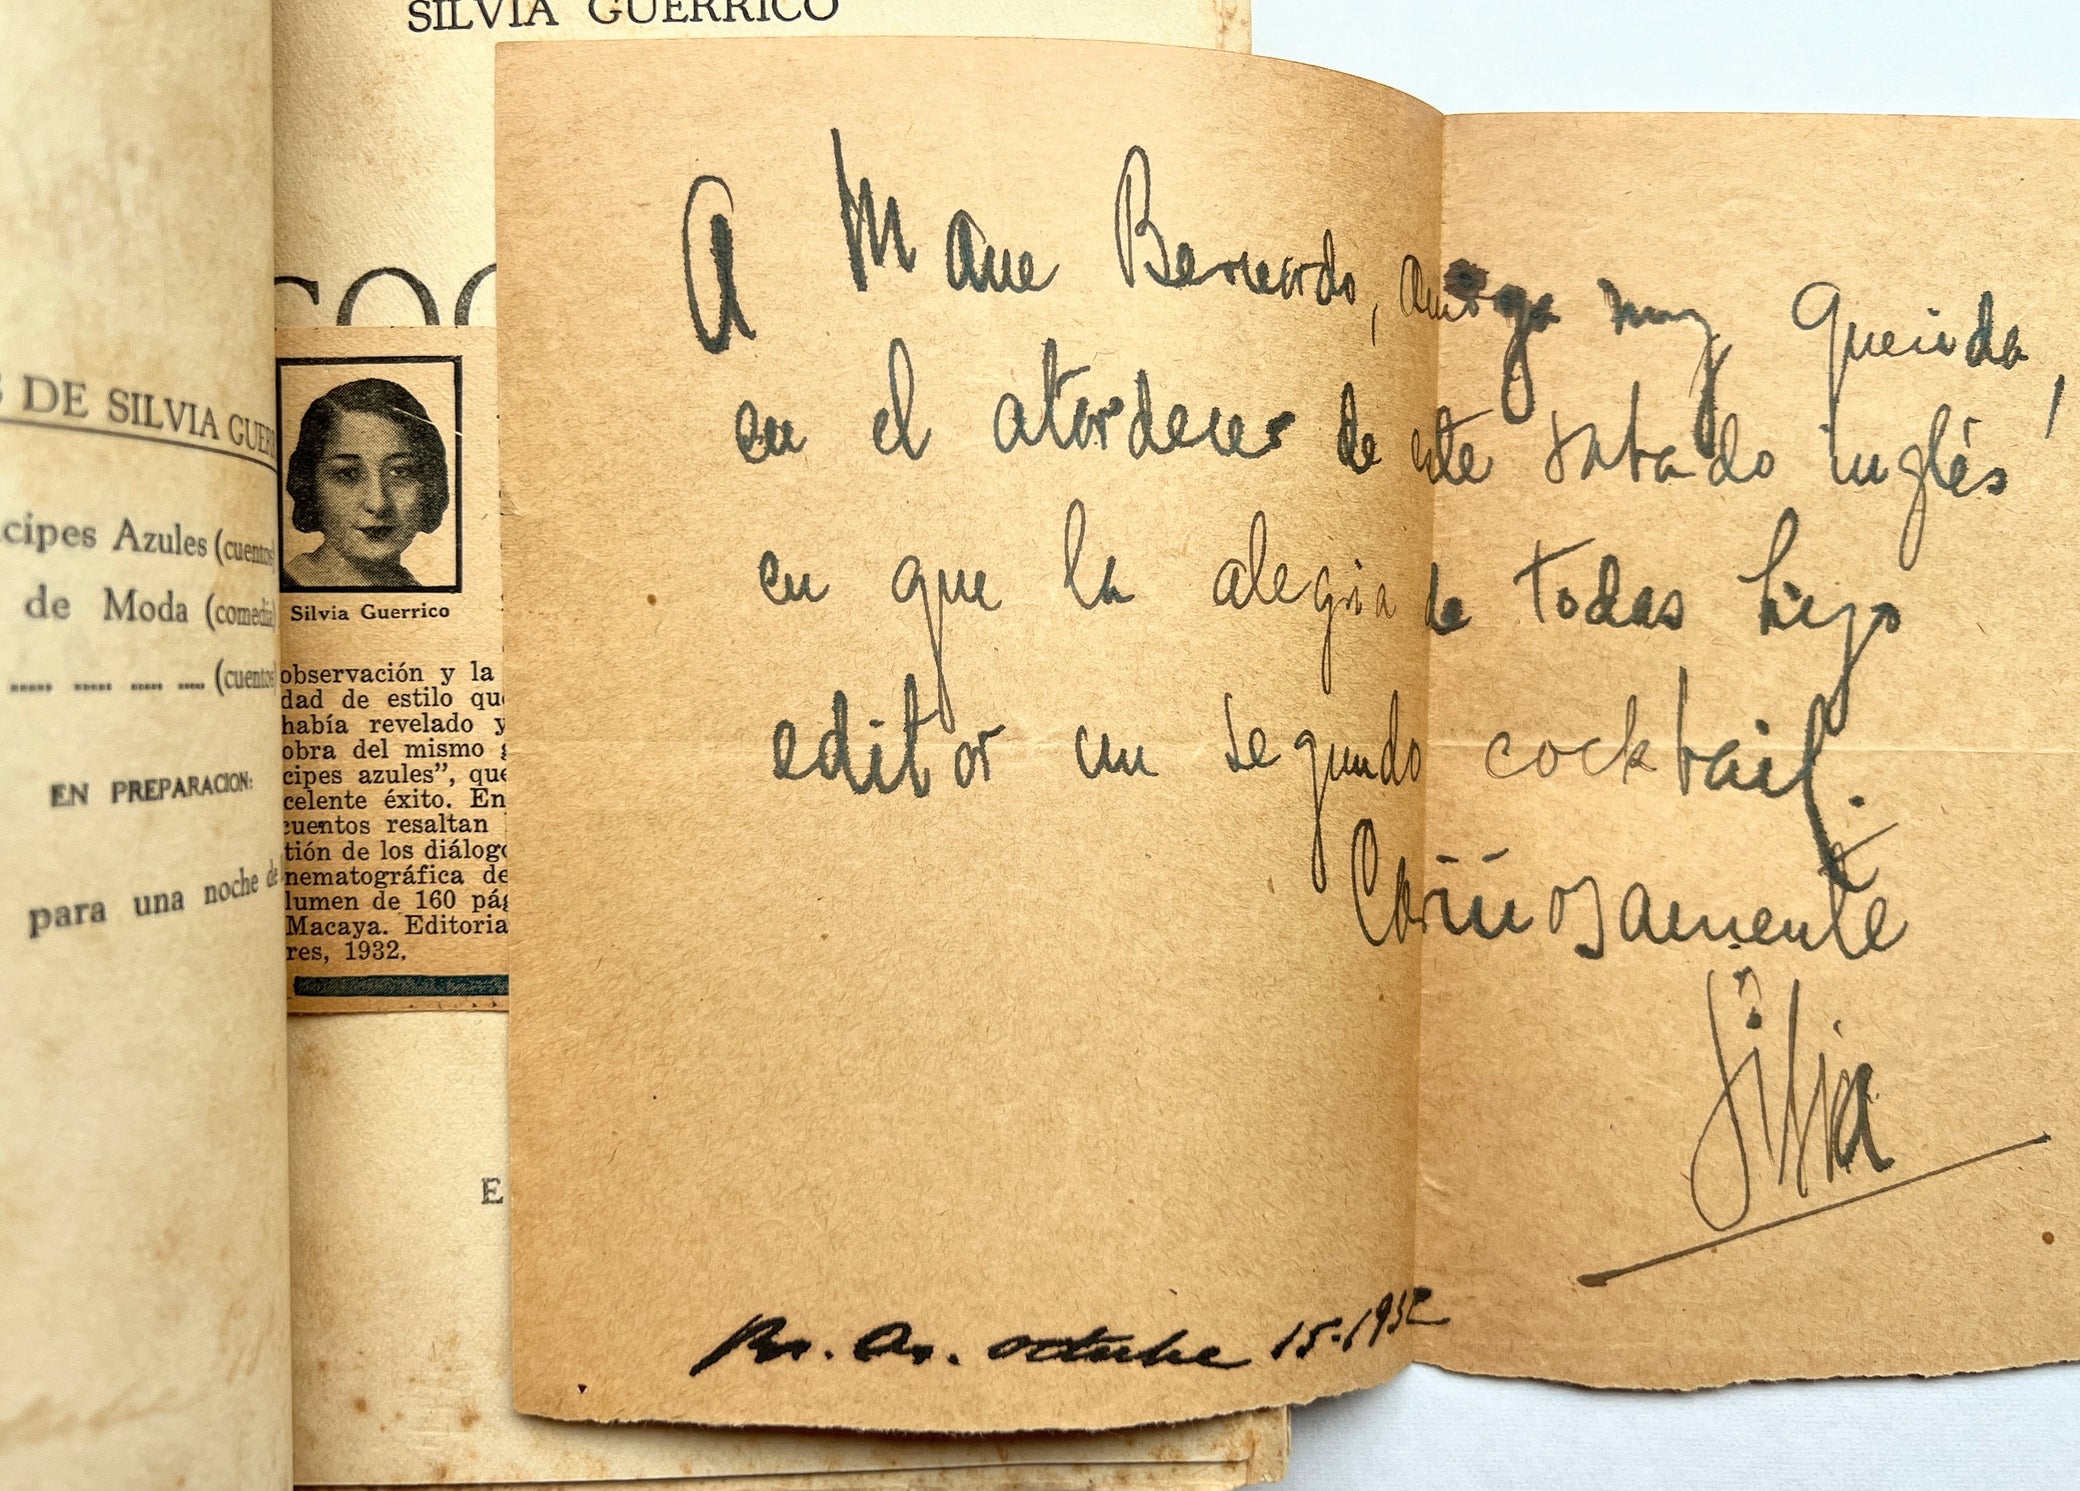 SILVIA GUERRICO
COC
S DE SILVIA GUER
ncipes Azules (cuentos)
de Moda (comedia)
..... ..... ..... ..... (cuentos
EN PREPARACION:
para una noche de
Silvia Guerrico
observación y la
dad de estilo que
había revelado y
obra del mismo g
cipes azules", que
celente éxito. En
cuentos resaltan
tión de los diálogo
nematográfica de
lumen de 160 pág
Macaya. Editoria
res, 1932.
E
A Mane Bernardo, amiga muy querida,
en el atordecer de este sabado inglés
en que la alegria de todas hizo
editor un segundo cocktail.
Cariñosamente
Silvia
Bs. As. octubre 15-1932